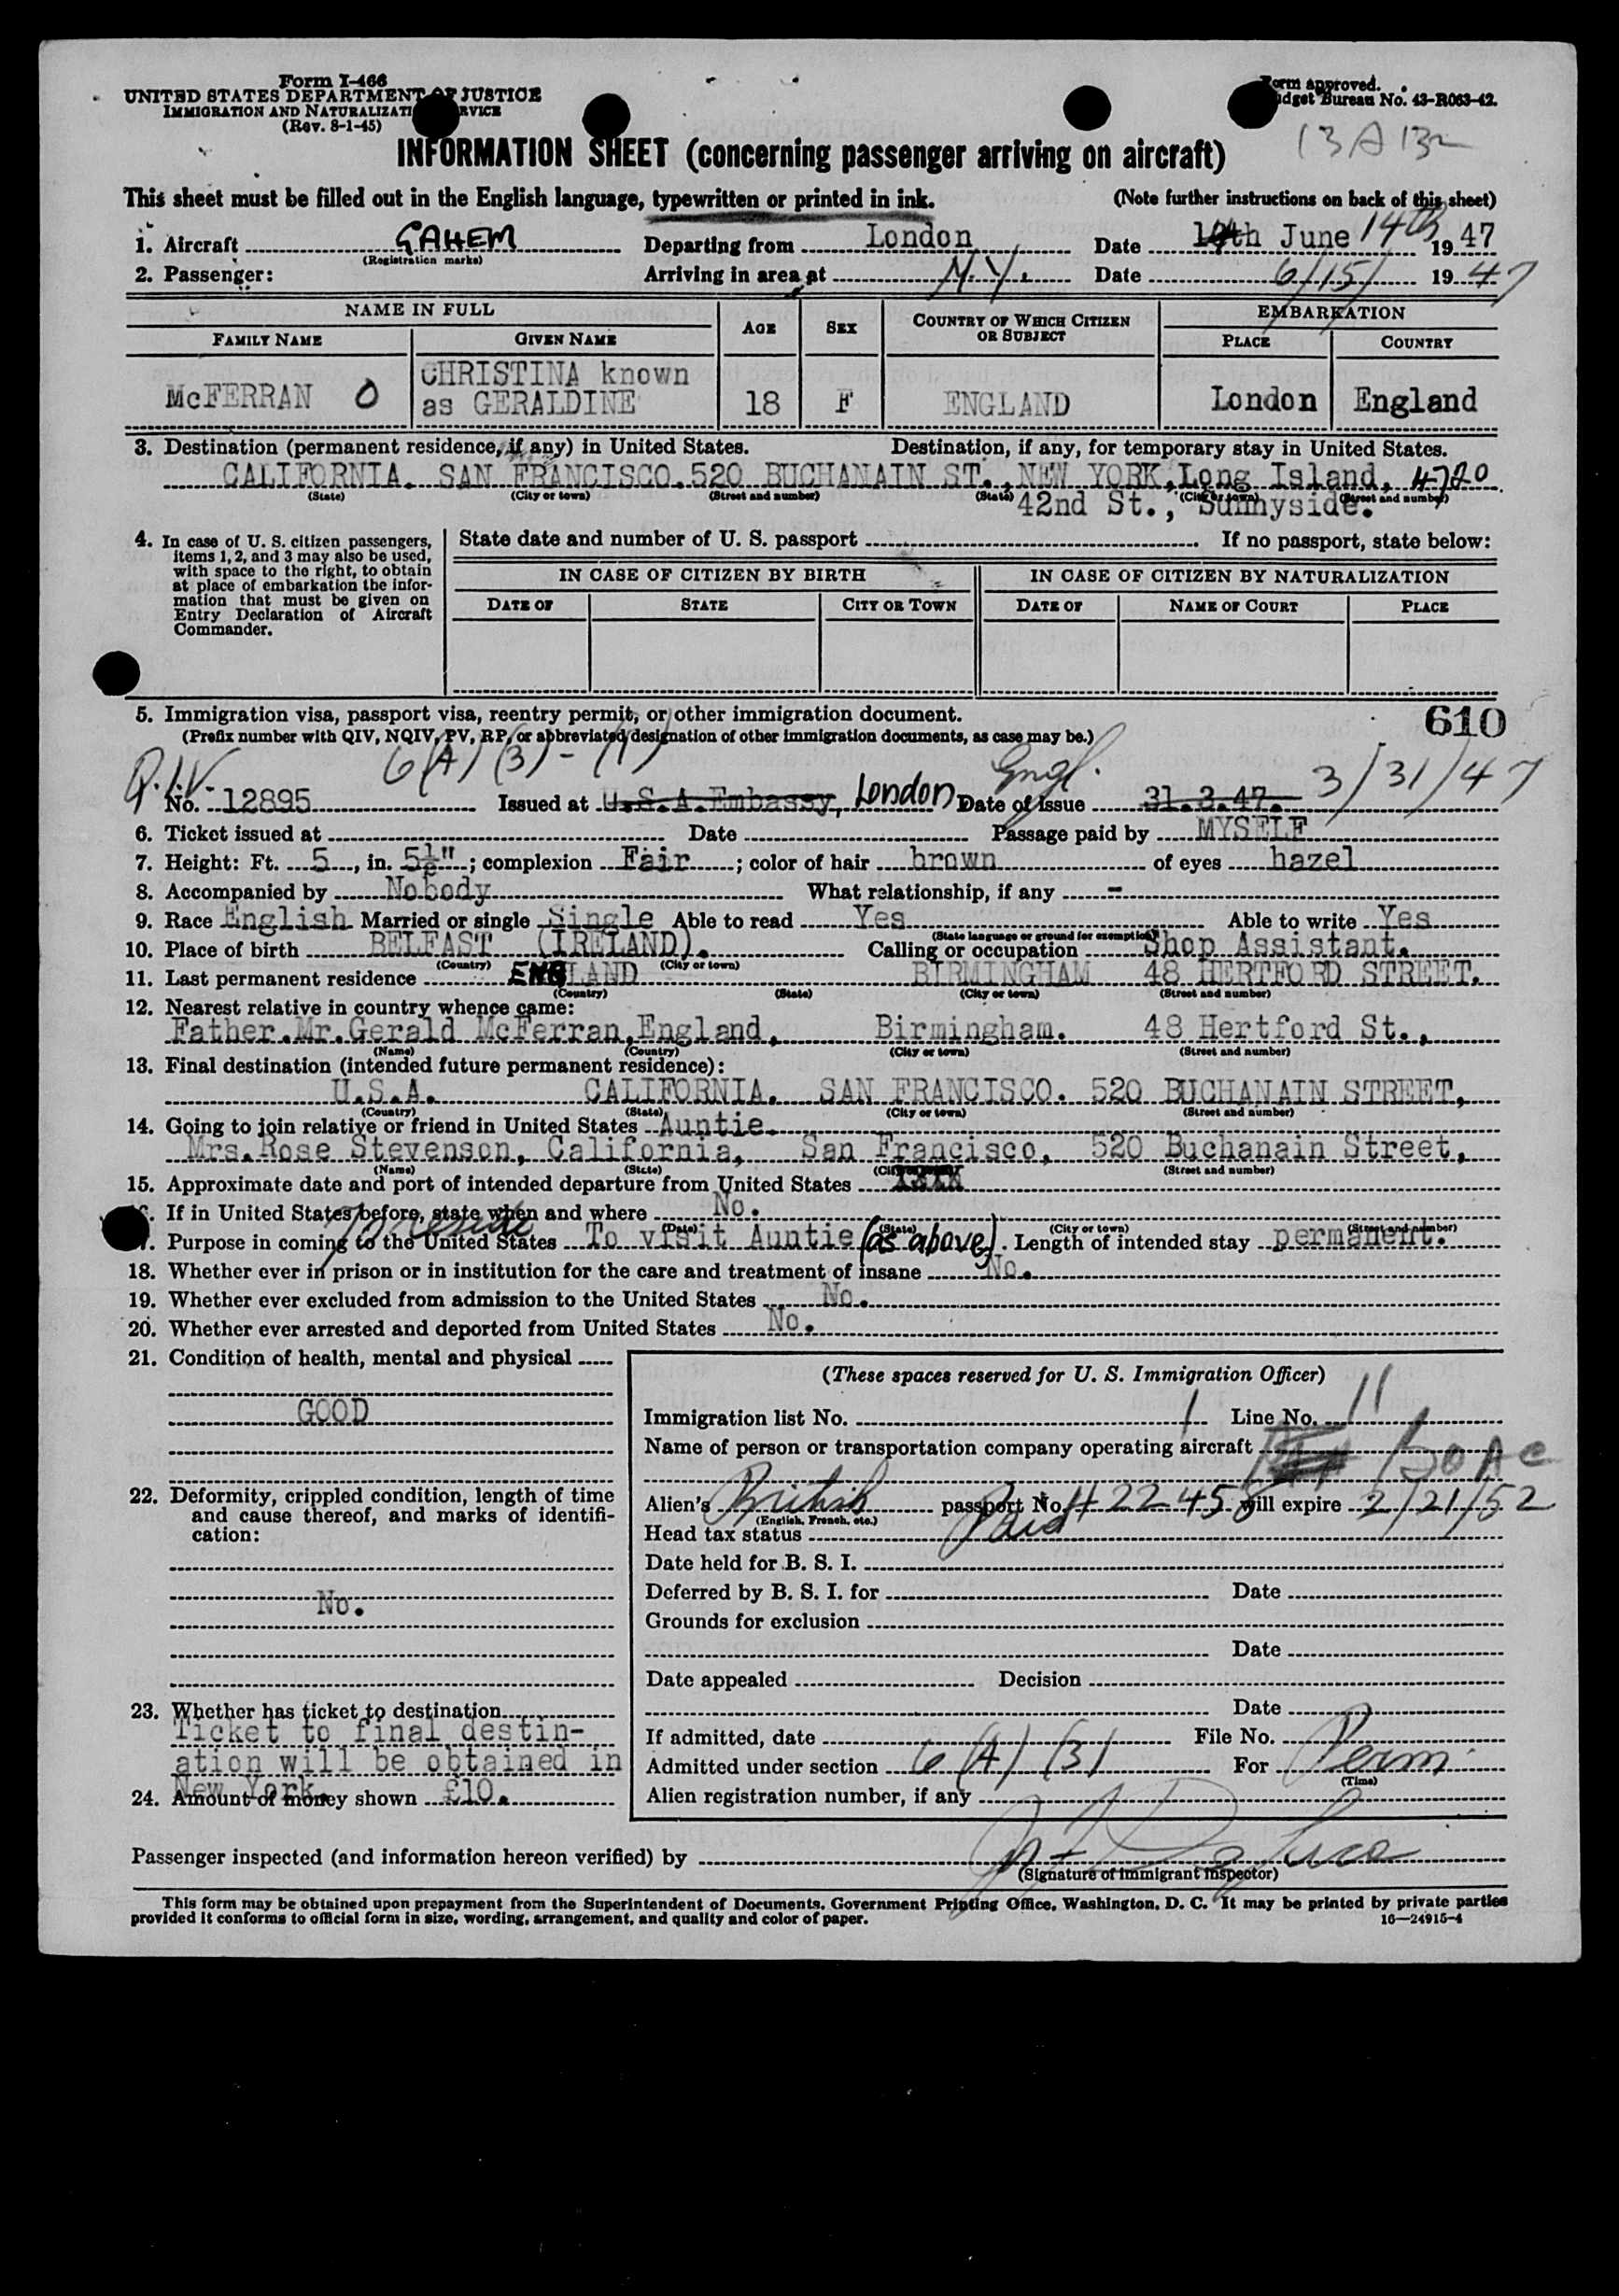 Form I-466
UNITED STATES DEPARTMENT OF JUSTICE
IMMIGRATION AND NATURALIZATI RVICE
(Rev. 8-1-45)
orm approved.
dget Bureau No. 43-R063-42.
13 A 132
INFORMATION SHEET (concerning passenger arriving on aircraft)
This sheet must be filled out in the English language, typewritten or printed in ink. (Note further instructions on back of this sheet)
1. Aircraft GAHEM Departing from London Date th June 14th 1947
(Registration marks)
2. Passenger: Arriving in area at N.Y. Date 6/15/ 1947
NAME IN FULL AGE SEX COUNTRY OF WHICH CITIZEN OR SUBJECT EMBARKATION
FAMILY NAME GIVEN NAME PLACE COUNTRY
McFERRAN O CHRISTINA known as GERALDINE 18 F ENGLAND London England
3. Destination (permanent residence, if any) in United States. Destination, if any, for temporary stay in United States.
CALIFORNIA. SAN FRANCISCO.520 BUCHANAIN ST., NEW YORK, Long Island, 4720
(State) (City or town) (Street and number) (State) (City or town) (Street and number)
42nd St., Sunnyside.
4. In case of U. S. citizen passengers, items 1, 2, and 3 may also be used, with space to the right, to obtain at place of embarkation the information that must be given on Entry Declaration of Aircraft Commander.
State date and number of U. S. passport If no passport, state below:
IN CASE OF CITIZEN BY BIRTH IN CASE OF CITIZEN BY NATURALIZATION
DATE OF STATE CITY OR TOWN DATE OF NAME OF COURT PLACE
5. Immigration visa, passport visa, reentry permit, or other immigration document. 610
(Prefix number with QIV, NQIV, PV, RP, or abbreviated designation of other immigration documents, as case may be.)
Q.I.V. 6(A)(3) - (1) Engl. 3/31/47
No. 12895 Issued at U.S.A. Embassy, London Date of issue 31.3.47.
6. Ticket issued at Date Passage paid by MYSELF
7. Height: Ft. 5, in. 5½"; complexion Fair; color of hair brown of eyes hazel
8. Accompanied by Nobody What relationship, if any -
9. Race English Married or single Single Able to read Yes Able to write Yes
(State language or ground for exemption)
10. Place of birth BELFAST (IRELAND). Calling or occupation Shop Assistant.
(Country) (City or town)
11. Last permanent residence ENGLAND BIRMINGHAM 48 HERTFORD STREET.
(Country) (State) (City or town) (Street and number)
12. Nearest relative in country whence came:
Father.Mr.Gerald McFerran,England, Birmingham. 48 Hertford St.,
(Name) (Country) (City or town) (Street and number)
13. Final destination (intended future permanent residence):
U.S.A. CALIFORNIA. SAN FRANCISCO. 520 BUCHANAIN STREET,
(Country) (State) (City or town) (Street and number)
14. Going to join relative or friend in United States Auntie.
Mrs.Rose Stevenson, California, San Francisco, 520 Buchanain Street,
(Name) (State) (Street and number)
15. Approximate date and port of intended departure from United States
. If in United States before, state when and where No.
(Date) (State) (City or town) (Street and number)
To reside
7. Purpose in coming to the United States To visit Auntie (as above). Length of intended stay permanent.
18. Whether ever in prison or in institution for the care and treatment of insane No.
19. Whether ever excluded from admission to the United States No.
20. Whether ever arrested and deported from United States No.
21. Condition of health, mental and physical
GOOD
22. Deformity, crippled condition, length of time and cause thereof, and marks of identification:
No.
23. Whether has ticket to destination
Ticket to final destin-
ation will be obtained in
New York.
24. Amount of money shown £10.
(These spaces reserved for U. S. Immigration Officer)
Immigration list No. 1 Line No. 11
Name of person or transportation company operating aircraft BOAC
Alien's British passport No. H 22458 will expire 2/21/52
(English, French, etc.)
Head tax status Paid
Date held for B. S. I.
Deferred by B. S. I. for Date
Grounds for exclusion
Date
Date appealed Decision
Date
If admitted, date File No.
Admitted under section 6(A)(3) For Perm.
(Time)
Alien registration number, if any
Passenger inspected (and information hereon verified) by
(Signature of immigrant inspector)
This form may be obtained upon prepayment from the Superintendent of Documents, Government Printing Office, Washington, D. C. It may be printed by private parties
provided it conforms to official form in size, wording, arrangement, and quality and color of paper. 16—24915-4